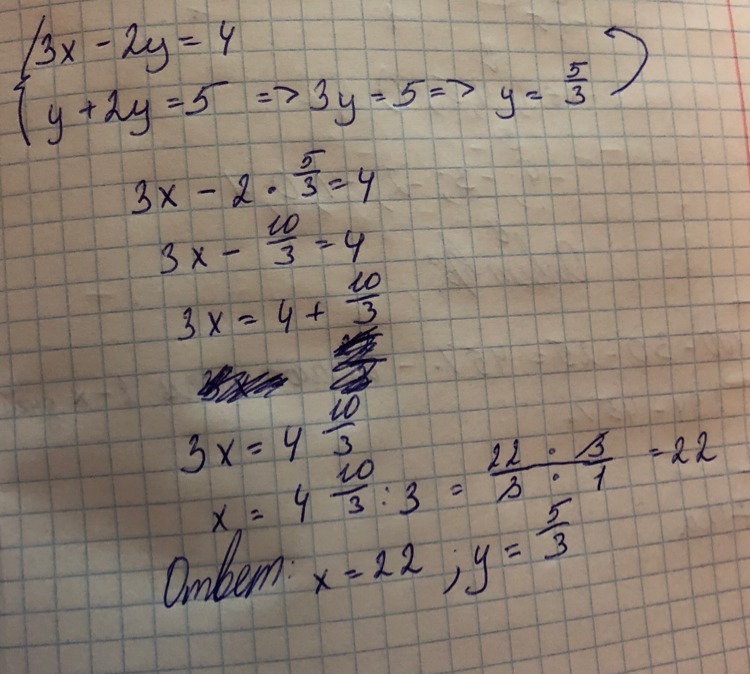 3x - 2y = 4
y + 2y = 5 => 3y = 5 => y = 5/3
3x - 2 · 5/3 = 4
3x - 10/3 = 4
3x = 4 + 10/3
3x = 4 10/3
x = 4 10/3 : 3 = 22 · 3 / 3 · 1 = 22
Ответ: x = 22 ; y = 5/3